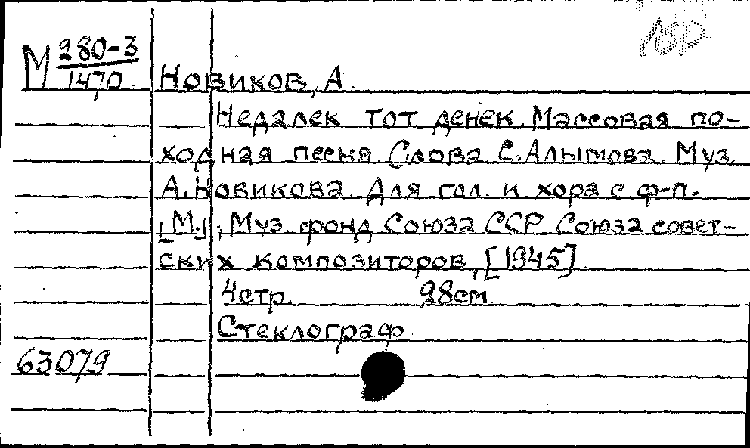 М 280-3
1470
Новиков, А.
Недалек тот денек. Массовая по-
ходная песня. Слова С. Алымова. Муз.
А. Новикова. Для гол. и хора с ф-п.
[М.], Муз. фонд Союза ССР Союза совет-
ских композиторов, [1945]
4стр. 28см
Стеклограф.
63079